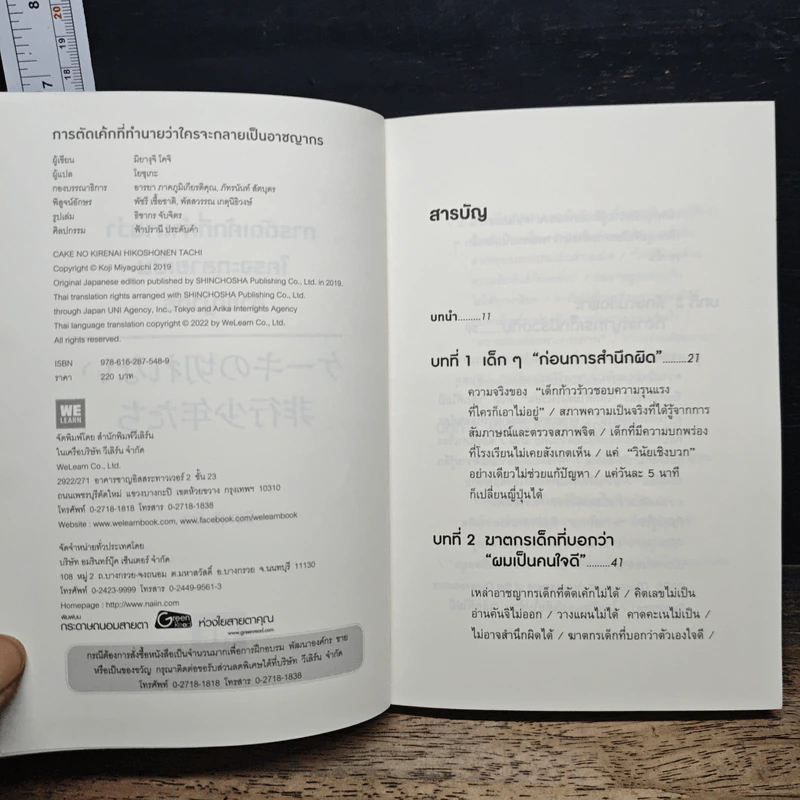 การตัดเค้กที่ทำนายว่าใครจะกลายเป็นอาชญากร
ผู้เขียน มิยางุจิ โคจิ
ผู้แปล โยซุเกะ
กองบรรณาธิการ อารยา ภาคภูมิเกียรติคุณ, ภัทรนันท์ สัตบุตร
พิสูจน์อักษร พัชรี เชื้อชาติ, พัสสวรรณ เกตุนิธิวงษ์
รูปเล่ม ธิชากร จับจิตร
ศิลปกรรม ฟ้าปรานี ประคับคำ
CAKE NO KIRENAI HIKOSHONEN TACHI
Copyright © Koji Miyaguchi 2019
Original Japanese edition published by SHINCHOSHA Publishing Co., Ltd. in 2019.
Thai translation rights arranged with SHINCHOSHA Publishing Co., Ltd.
through Japan UNI Agency, Inc., Tokyo and Arika Interrights Agency
Thai language translation copyright © 2022 by WeLearn Co., Ltd.
All rights reserved.
ISBN 978-616-287-548-9
ราคา 220 บาท
WE
LEARN
จัดพิมพ์โดย สำนักพิมพ์วีเลิร์น
ในเครือบริษัท วีเลิร์น จำกัด
WeLearn Co., Ltd.
2922/271 อาคารชาญอิสสระทาวเวอร์ 2 ชั้น 23
ถนนเพชรบุรีตัดใหม่ แขวงบางกะปิ เขตห้วยขวาง กรุงเทพฯ 10310
โทรศัพท์ 0-2718-1818 โทรสาร 0-2718-1838
Website : www.welearnbook.com, www.facebook.com/welearnbook
จัดจำหน่ายทั่วประเทศโดย
บริษัท อมรินทร์บุ๊ค เซ็นเตอร์ จำกัด
108 หมู่ 2 ถ.บางกรวย-จงถนอม ต.มหาสวัสดิ์ อ.บางกรวย จ.นนทบุรี 11130
โทรศัพท์ 0-2423-9999 โทรสาร 0-2449-9561-3
Homepage : http://www.naiin.com
พิมพ์บน
กระดาษถนอมสายตา Green Read ห่วงใยสายตาคุณ
www.greenread.com
กรณีต้องการสั่งซื้อหนังสือเป็นจำนวนมากเพื่อการฝึกอบรม พัฒนาองค์กร ขาย
หรือเป็นของขวัญ กรุณาติดต่อขอรับส่วนลดพิเศษได้ที่บริษัท วีเลิร์น จำกัด
โทรศัพท์ 0-2718-1818 โทรสาร 0-2718-1838
สารบัญ
บทนำ.........11
บทที่ 1 เด็ก ๆ "ก่อนการสำนึกผิด".........21
ความจริงของ "เด็กก้าวร้าวชอบความรุนแรง
ที่ใครก็เอาไม่อยู่" / สภาพความเป็นจริงที่ได้รู้จากการ
สัมภาษณ์และตรวจสภาพจิต / เด็กที่มีความบกพร่อง
ที่โรงเรียนไม่เคยสังเกตเห็น / แค่ "วินัยเชิงบวก"
อย่างเดียวไม่ช่วยแก้ปัญหา / แค่วันละ 5 นาที
ก็เปลี่ยนญี่ปุ่นได้
บทที่ 2 ฆาตกรเด็กที่บอกว่า
"ผมเป็นคนใจดี".........41
เหล่าอาชญากรเด็กที่ตัดเค้กไม่ได้ / คิดเลขไม่เป็น
อ่านคันจิไม่ออก / วางแผนไม่ได้ คาดคะเนไม่เป็น /
ไม่อาจสำนึกผิดได้ / ฆาตกรเด็กที่บอกว่าตัวเองใจดี /
8
7
20
19
18